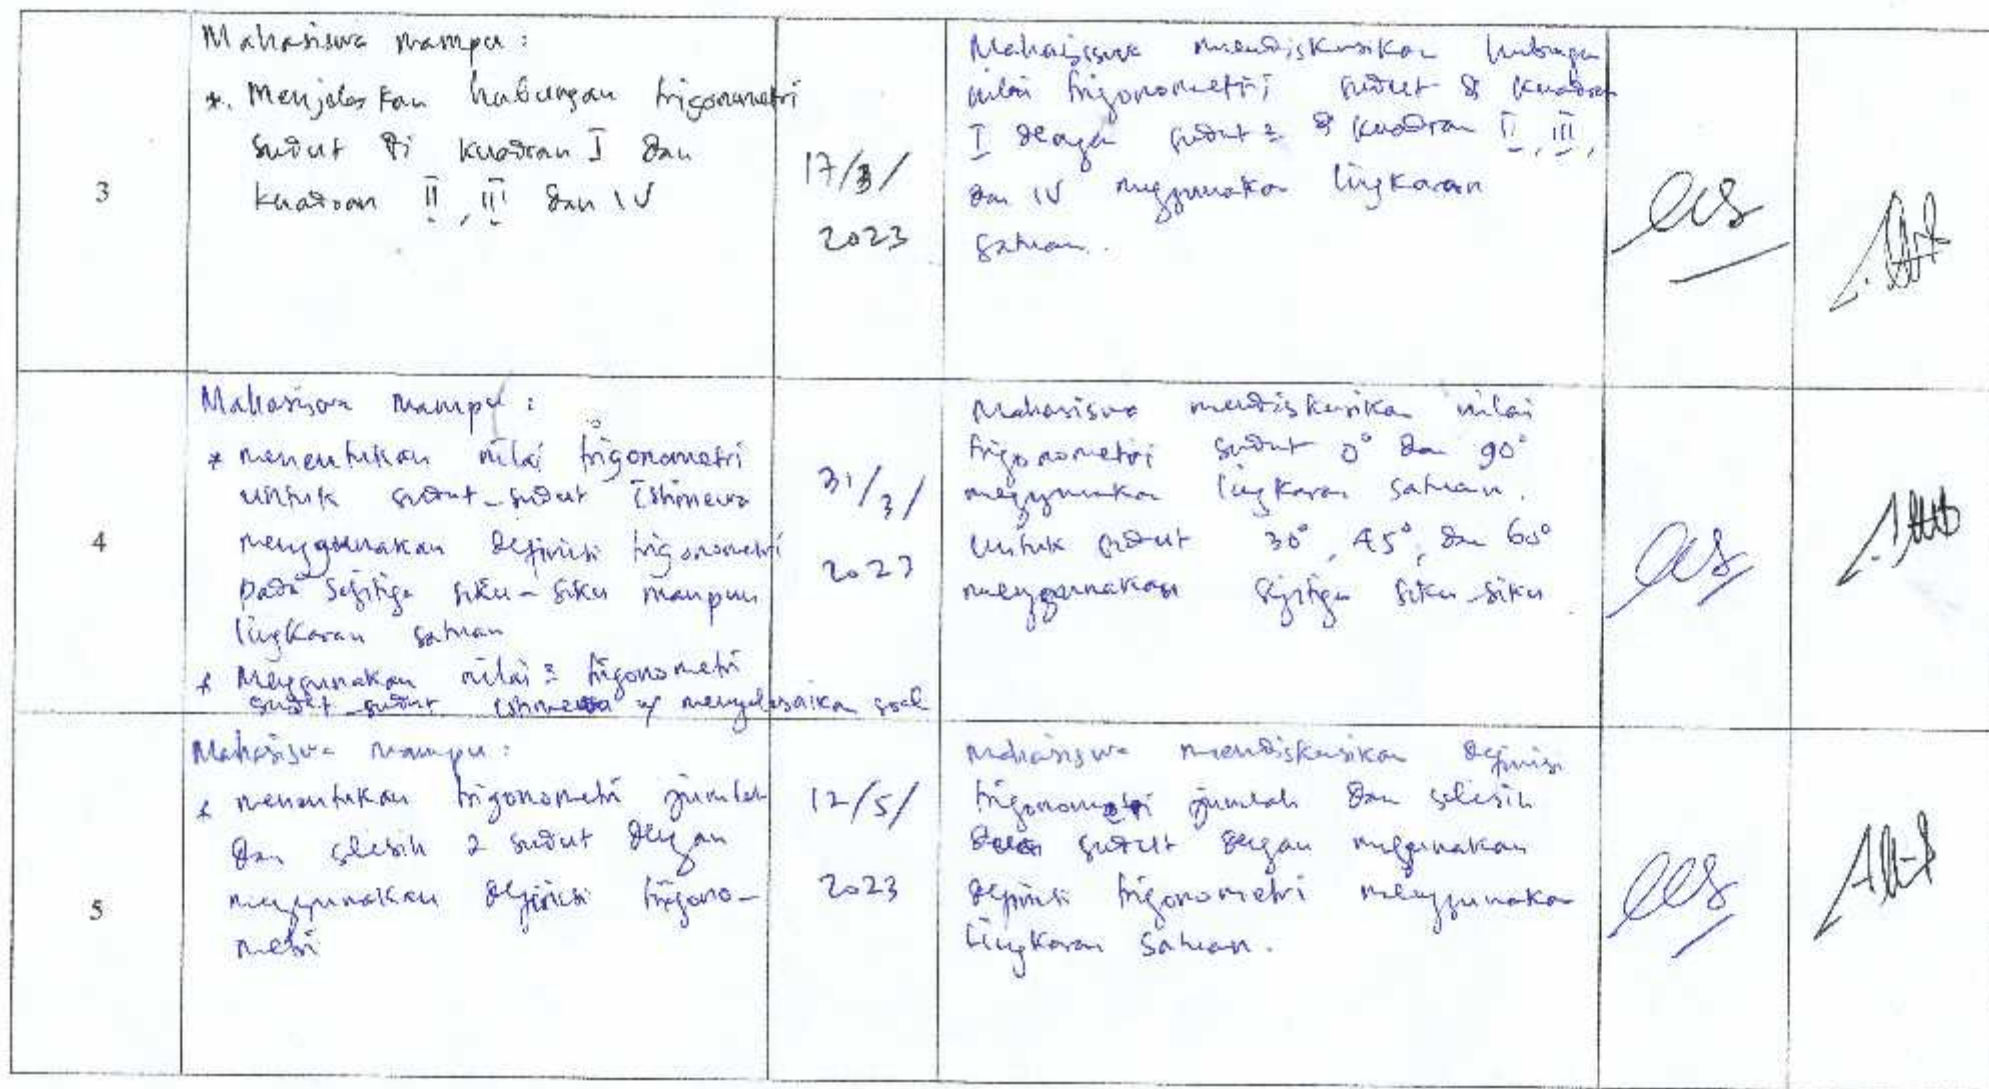 3
Mahasiswa mampu :
*. Menjelaskan hubungan trigonometri
sudut di kuadran I dan
kuadran II, III dan IV
17/3/
2023
Mahasiswa mendiskusikan hubungan
nilai trigonometri sudut di kuadran
I dengan sudut² di kuadran II, III,
dan IV menggunakan lingkaran
satuan.
4
Mahasiswa mampu :
* menentukan nilai trigonometri
untuk sudut-sudut istimewa
menggunakan definisi trigonometri
pada segitiga siku-siku maupun
lingkaran satuan
* Menggunakan nilai² trigonometri
sudut-sudut istimewa u/ menyelesaikan soal
31/3/
2023
Mahasiswa mendiskusikan nilai
trigonometri sudut 0° dan 90°
menggunakan lingkaran satuan.
Untuk sudut 30°, 45°, dan 60°
menggunakan segitiga siku-siku
5
Mahasiswa mampu :
* menentukan trigonometri jumlah
dan selisih 2 sudut dengan
menggunakan definisi trigono-
metri
12/5/
2023
Mahasiswa mendiskusikan definisi
trigonometri jumlah dan selisih
sudut dengan menggunakan
definisi trigonometri menggunakan
lingkaran satuan.